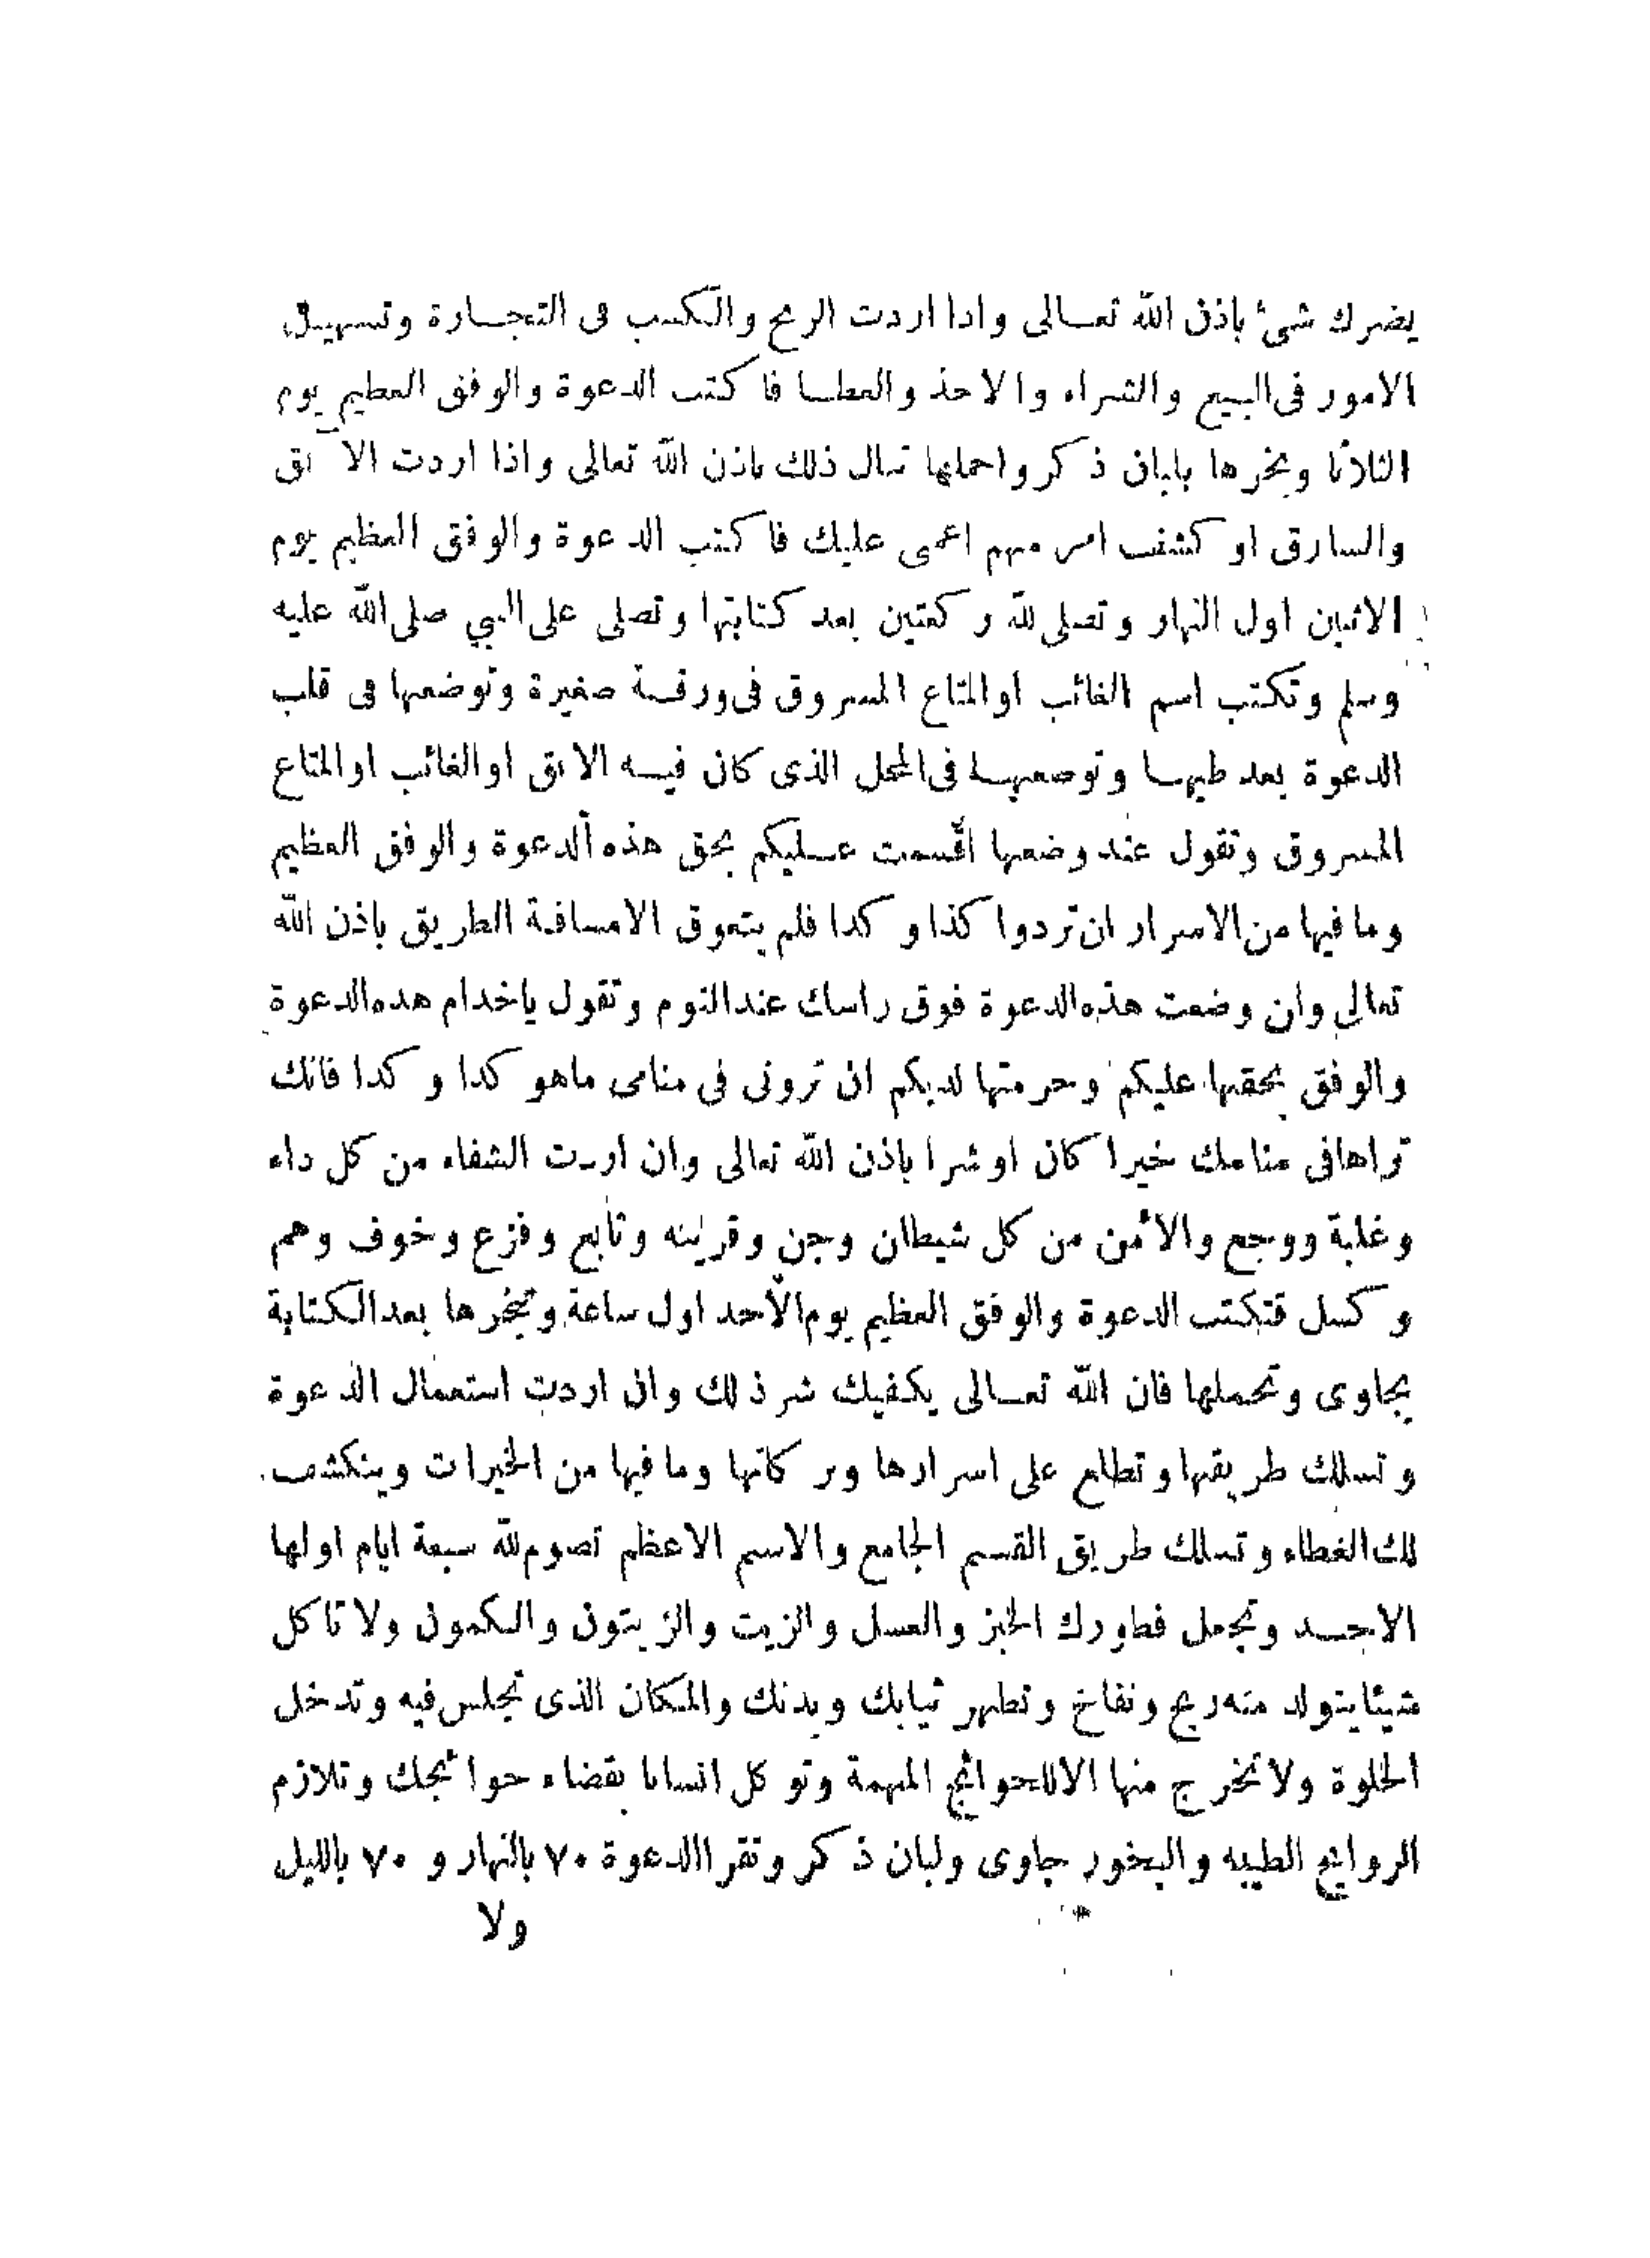 يضرك شئ باذن الله تعالى واذا اردت الربح والكسب فى التجارة وتسهيل
الامور فى البيع والشراء والاخذ والعطا فاكتب الدعوة والوفق العظيم يوم
الثلاثا وبخرها بلبان ذكر واحملها تنال ذلك باذن الله تعالى واذا اردت الابق
والسارق او كشف امر مهم اعمى عليك فاكتب الدعوة والوفق العظيم يوم
الاثنين اول النهار وتصلى لله ركعتين بعد كتابتها وتصلى على النبي صلى الله عليه
وسلم وتكتب اسم الغائب او المتاع المسروق فى ورقة صغيرة وتوضعها فى قلب
الدعوة بعد طيها وتوضعها فى المحل الذى كان فيه الابق او الغائب او المتاع
المسروق وتقول عند وضعها اقسمت عليكم بحق هذه الدعوة والوفق العظيم
وما فيها من الاسرار ان تردوا كذا وكذا فلم يتعوق الا مسافة الطريق باذن الله
تعالى وان وضعت هذه الدعوة فوق راسك عند النوم وتقول ياخدام هذه الدعوة
والوفق بحقها عليكم وحرمتها لديكم ان ترونى فى منامى ماهو كذا وكذا فانك
تراها فى منامك خيرا كان او شرا باذن الله تعالى وان اردت الشفاء من كل داء
وغلبة ووجع والأمن من كل شيطان وجن وقرينه وتابع وفزع وخوف وهم
وكسل فتكتب الدعوة والوفق العظيم يوم الأحد اول ساعة وتبخرها بعد الكتابة
بجاوى وتحملها فان الله تعالى يكفيك شر ذلك وان اردت استعمال الدعوة
وتسلك طريقها وتطلع على اسرارها وبركاتها وما فيها من الخيرات وينكشف
لك الغطاء وتسلك طريق القسم الجامع والاسم الاعظم تصوم لله سبعة ايام اولها
الاحد وتجعل فطورك الخبز والعسل والزيت والزيتون والكمون ولا تاكل
شيئا يتولد منه ريح ونفاخ وتطهر ثيابك وبدنك والمكان الذى تجلس فيه وتدخل
الخلوة ولا تخرج منها الا للحوائج المهمة وتوكل انسانا بقضاء حوائجك وتلازم
الروائح الطيبه والبخور جاوى ولبان ذكر وتقرا الدعوة ٧٠ بالنهار و ٧٠ بالليل
ولا